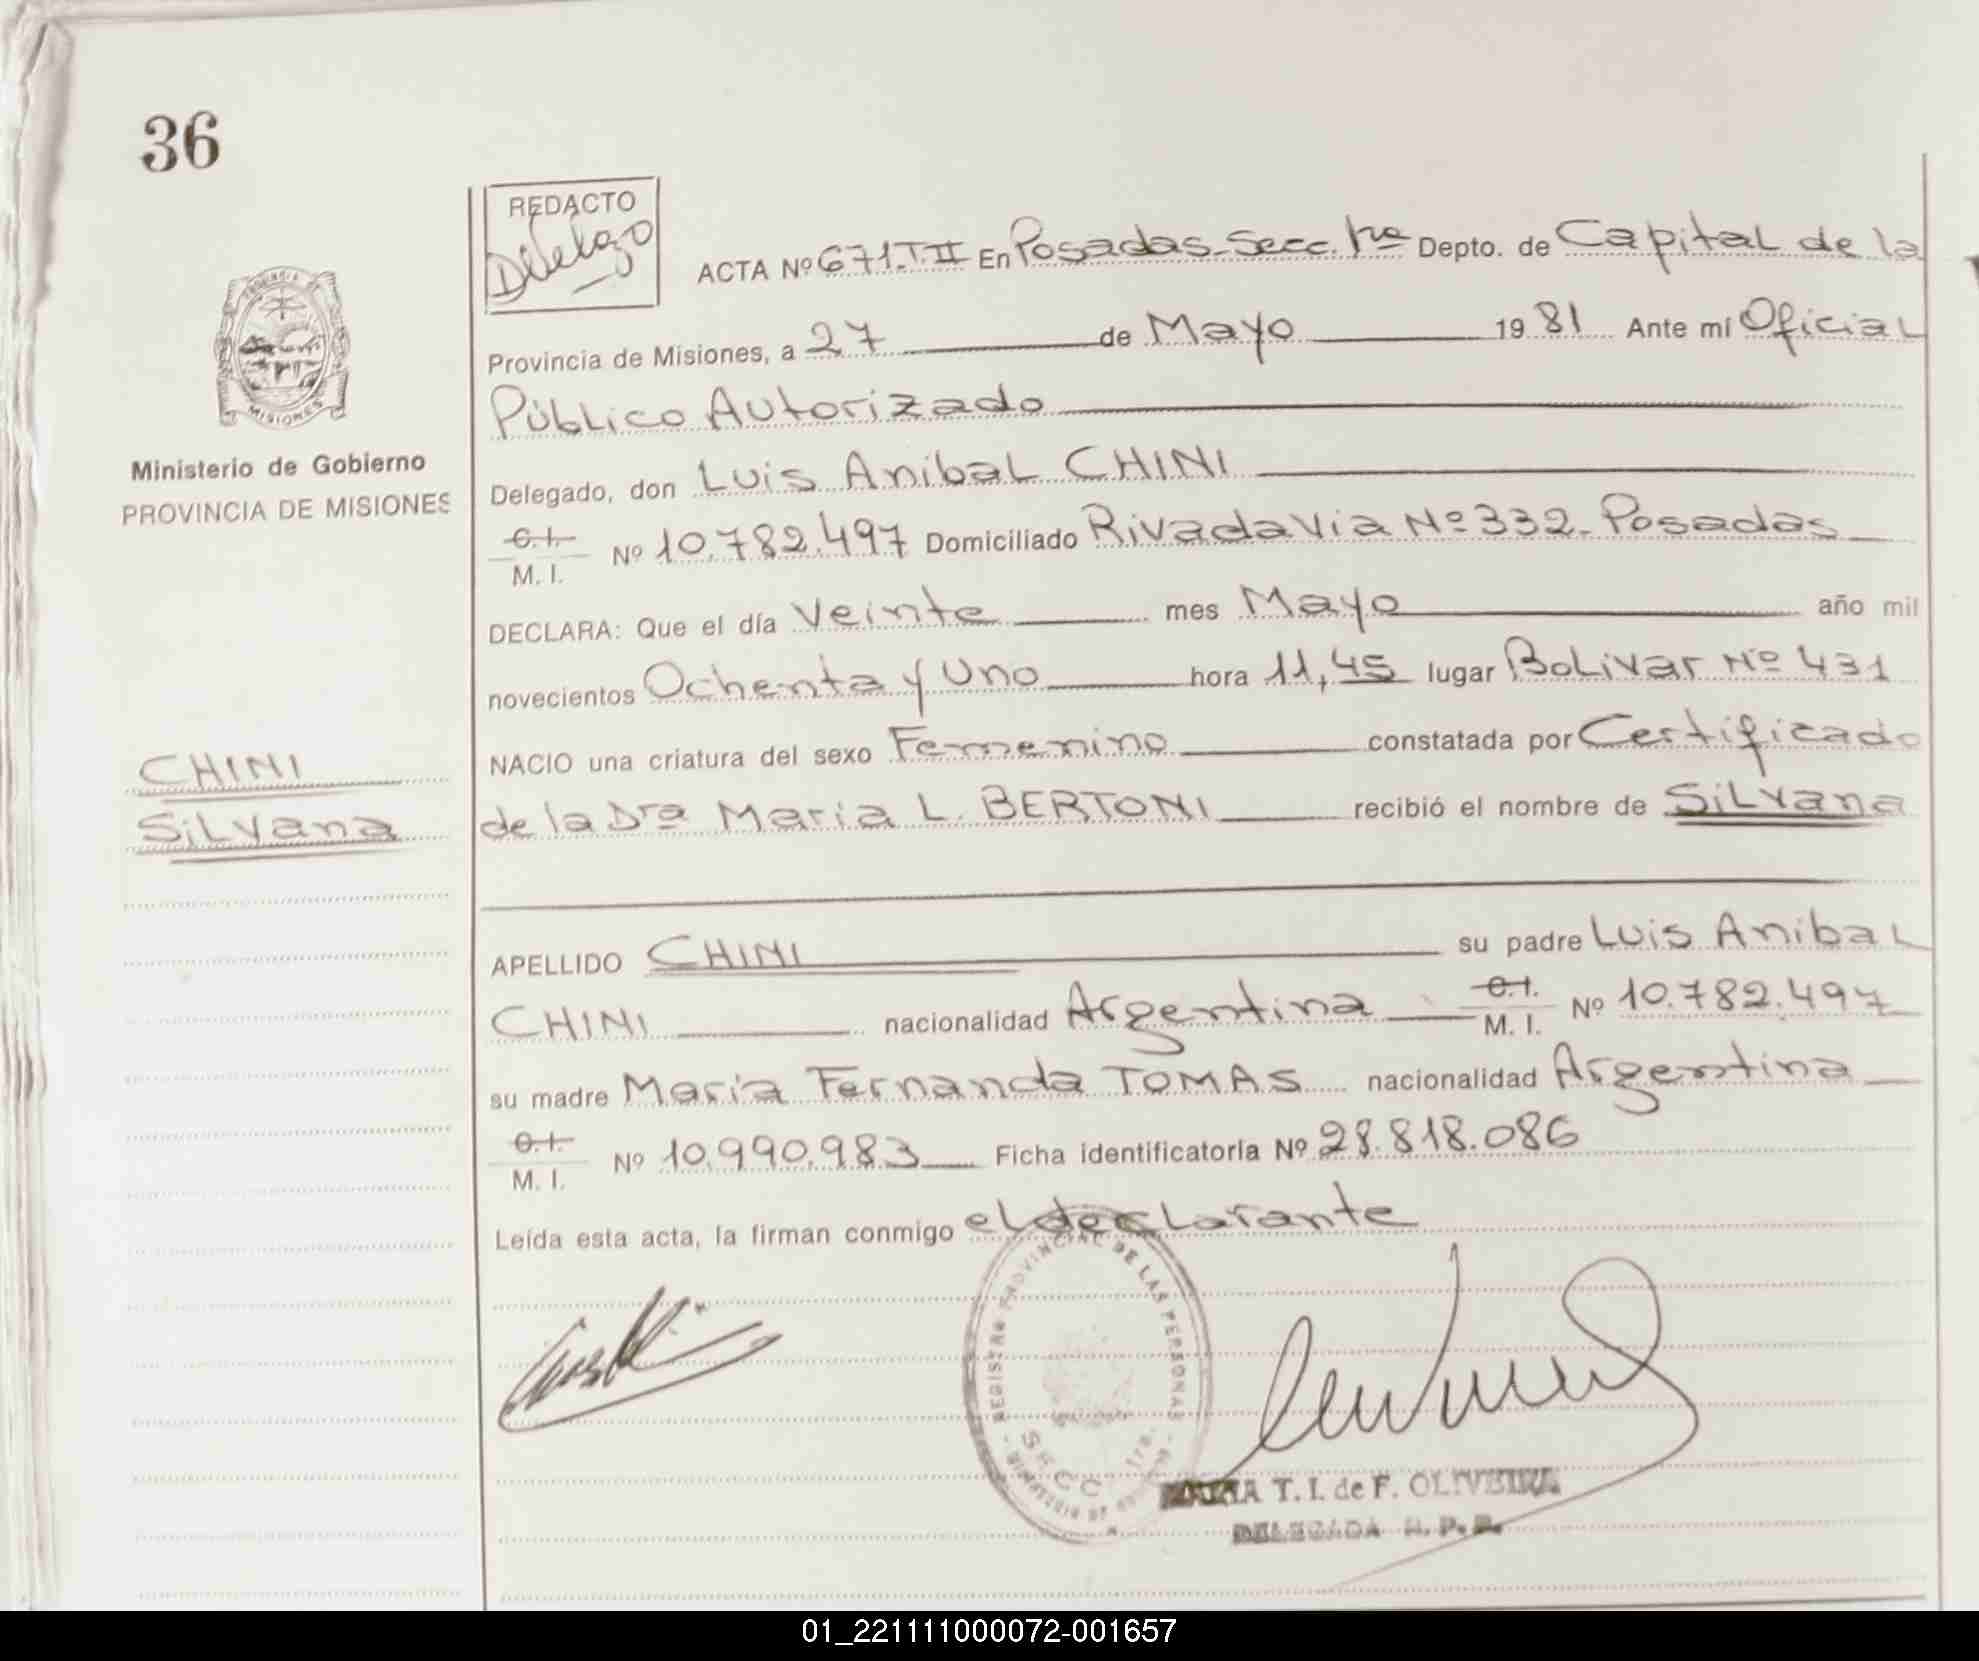 36
REDACTO
Delgazo
ACTA Nº 671.T II En Posadas-Secc. 1ra Depto. de Capital de la
Provincia de Misiones, a 27 de Mayo 1981 Ante mí Oficial
Público Autorizado
Delegado, don Luis Anibal CHINI
C.I. M.I. Nº 10.782.497 Domiciliado Rivadavia Nº 332- Posadas
DECLARA: Que el día Veinte mes Mayo año mil
novecientos Ochenta y Uno hora 11,45 lugar Bolivar Nº 431
NACIO una criatura del sexo Femenino constatada por Certificado
de la Dra Maria L. BERTONI recibió el nombre de Silvana
APELLIDO CHINI su padre Luis Anibal
CHINI nacionalidad Argentina C.I. M.I. Nº 10.782.497
su madre Maria Fernanda TOMAS nacionalidad Argentina
C.I. M.I. Nº 10.990.983 Ficha identificatoria Nº 28.818.086
Leída esta acta, la firman conmigo el declarante
MISIONES
Ministerio de Gobierno
PROVINCIA DE MISIONES
CHINI
Silvana
REGISTRO PROVINCIAL DE LAS PERSONAS
SECC 1ra.
T. I. de F. OLIVEIRA
DELEGADA R. P. P.
01_221111000072-001657